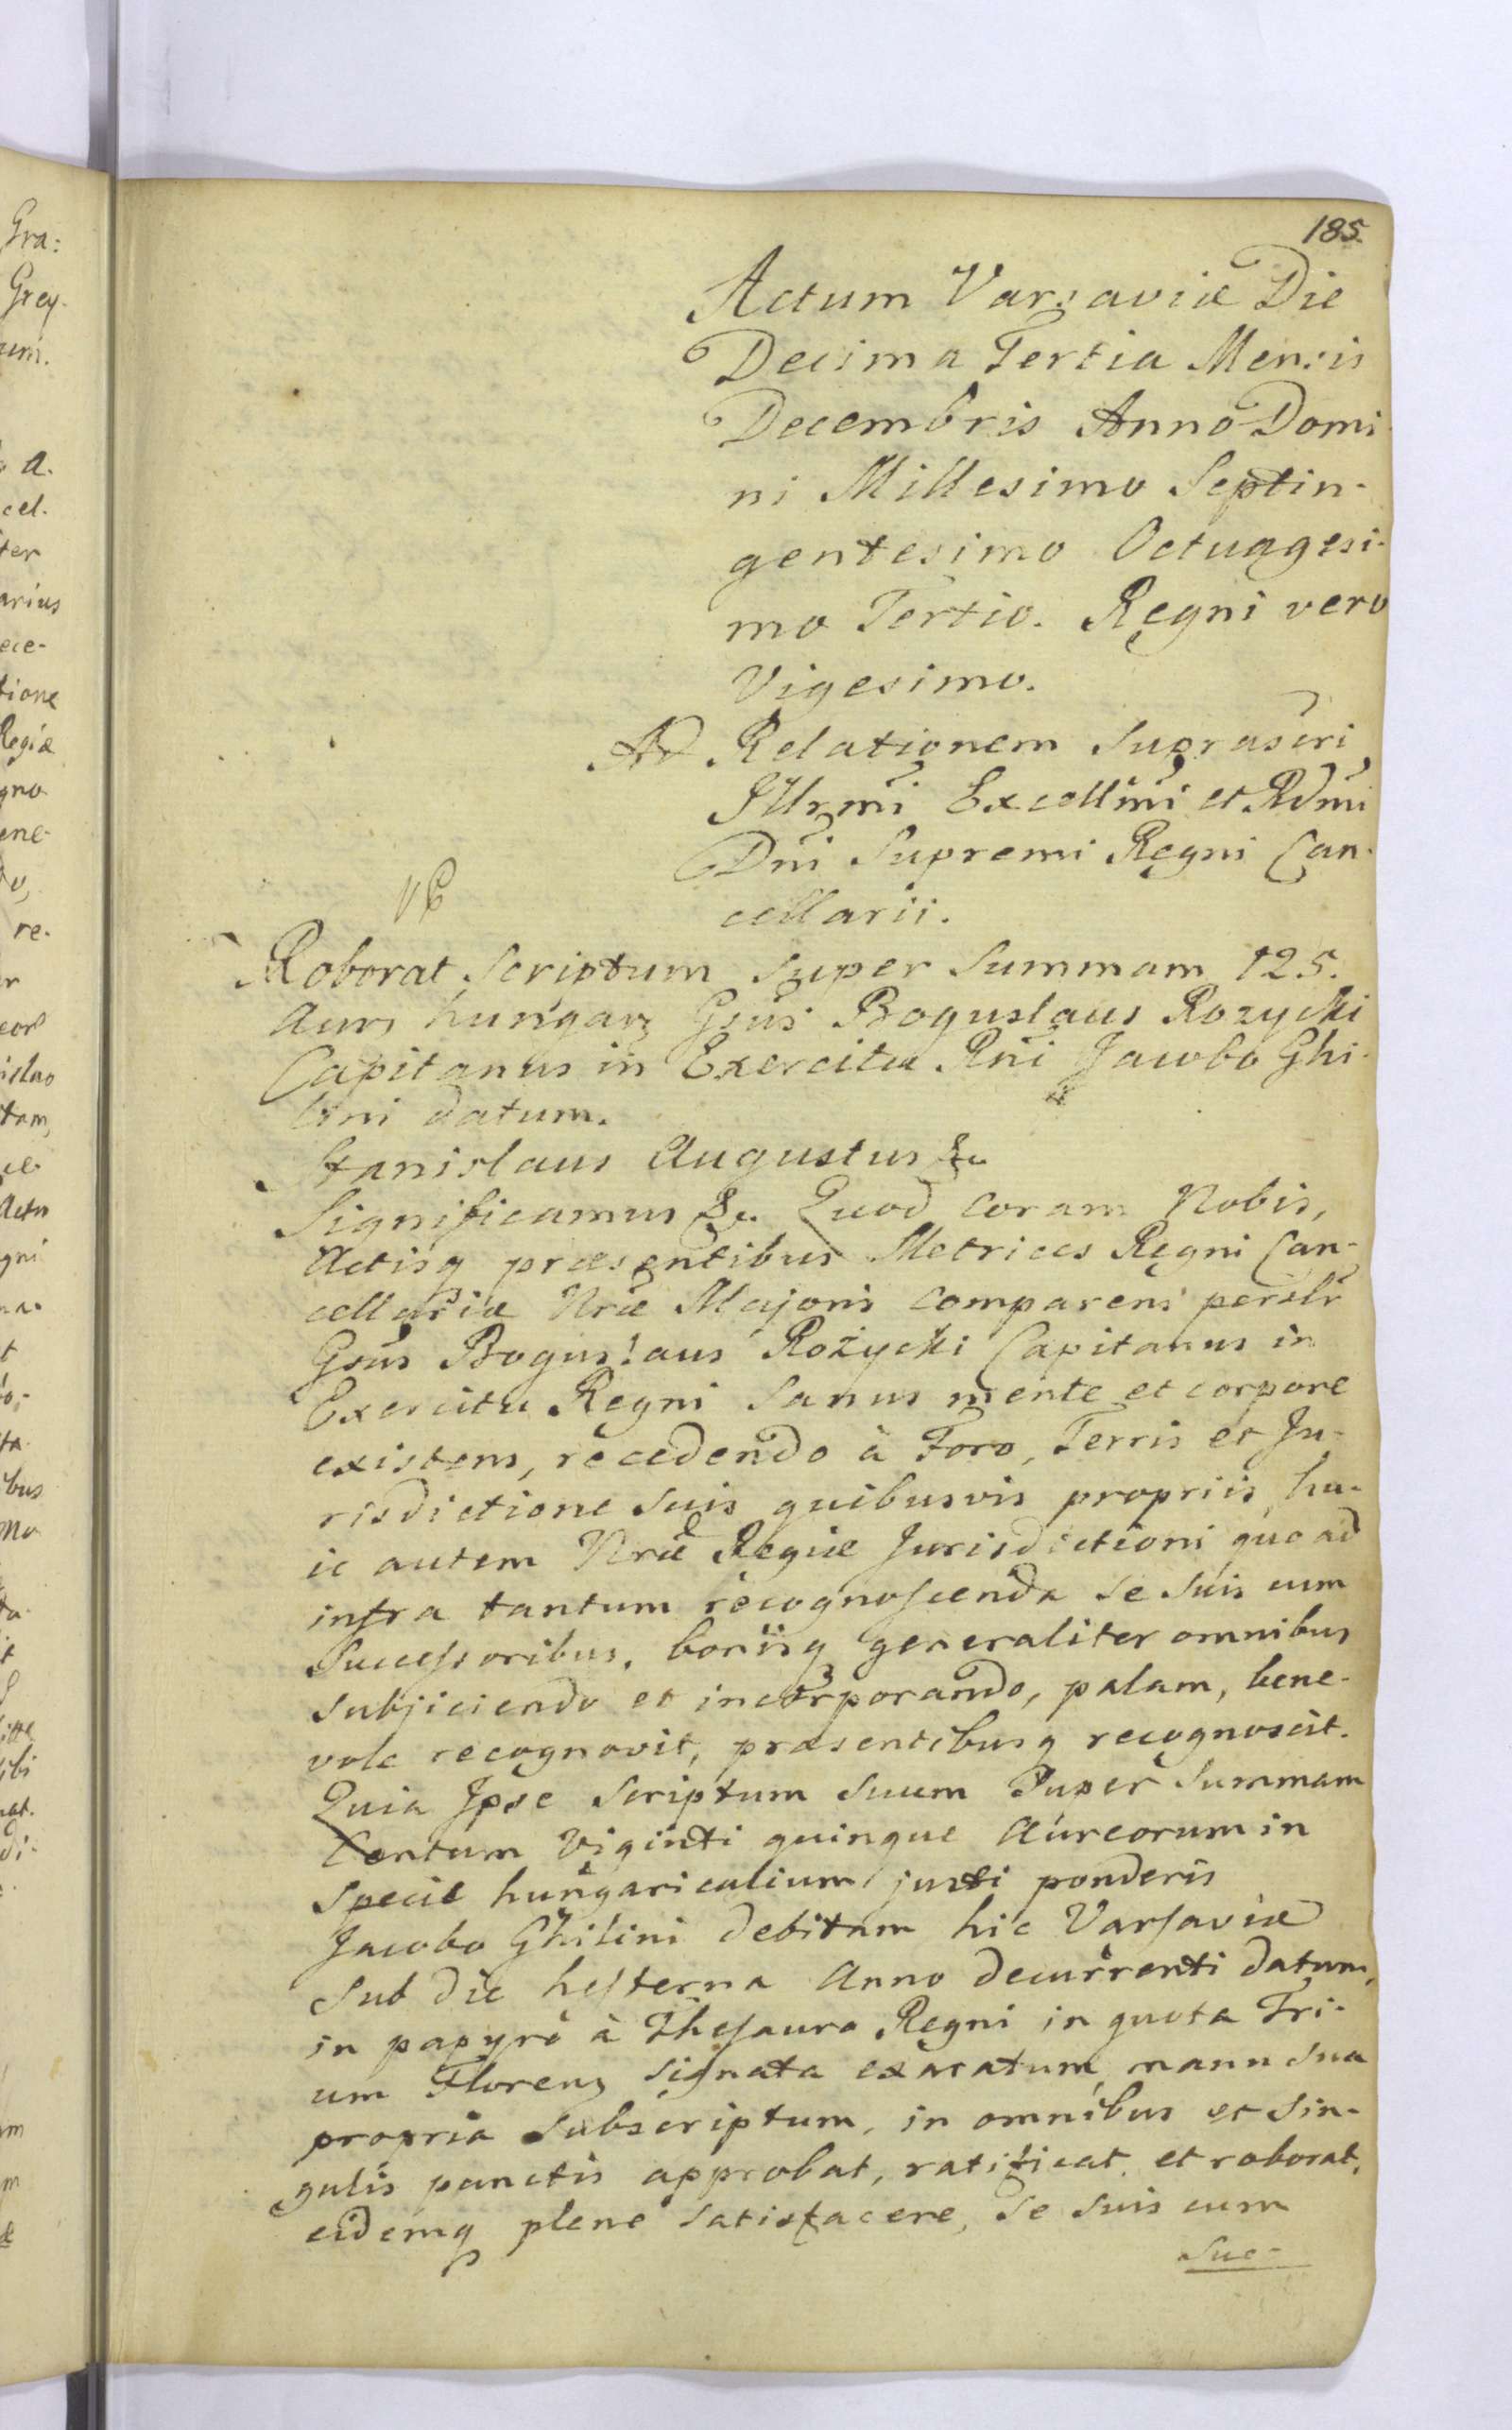 185.
Actum Varsaviæ Die
Decima Tertia Mensis
Decembris Anno Domi
ni Millesimo Septin-
gentesimo Octuagesi-
mo Tertio. Regni vero
Vigesimo.
Ad Relationem suprascri
Illrmi Excellmi et Rdmi
Dni Supremi Regni Can-
cellarii.
Roborat scriptum super summam 125.
aurs hungarz Gsus Boguslaus Rozycki
Capitanus in Exercitu Rni Jacobo Ghi-
lini datum.
Stanislaus Augustus &c
Significamus &c. Quod coram Nobis,
Actisq præsentibus Metrices Regni Can-
cellariæ Nræ Majoris comparens perslr
Gsus Boguslaus Rożycki Capitanus in
Exercitu Regni sanus mente et corpore
existens, recedendo à Foro, Terris et Ju-
risdictione suis quibusvis propriis, hu-
ic autem Nræ Regiæ Jurisdictioni quoad
infra tantum recognoscenda se suis cum
Successoribus, boniisq generaliter omnibus
subjiciendo et incorporando, palam, bene-
vole recognovit, præsentibusq recognoscit.
Quia Ipse scriptum suum super summam
Centum Viginti quinque Aureorum in
specie hungaricalium justi ponderis
Jacobo Ghilini debitam hic Varsaviæ
sub die hesterna Anno decurrenti datum,
in papyro à Thesauro Regni in quota Tri-
um Florenz signata exaratum, manu sua
propria subscriptum, in omnibus et sin-
gulis punctis approbat, ratificat, et roborat,
eidemq plene satisfacere, se suis cum
suc-
Gra:
Grey.
um.
a.
cel.
ter
arius
ece-
tione
Regiæ
gno
ene-
re.
tam,
Actu
gni
bus